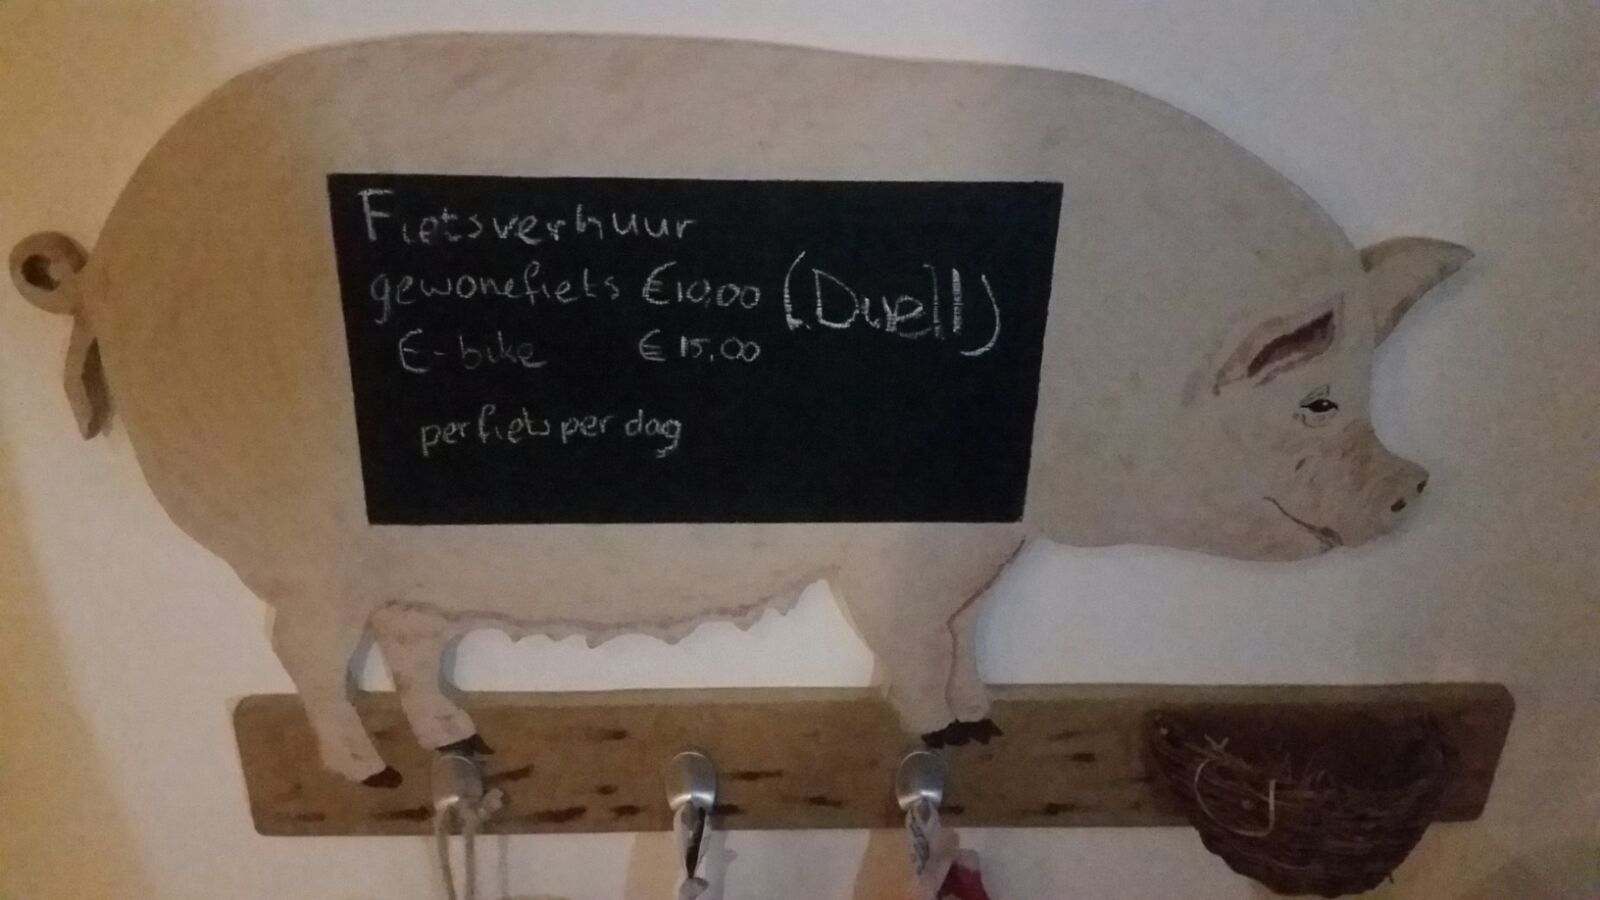 Fietsverhuur
gewonefiets €10,00 (Duell)
E-bike €15,00
per fiets per dag